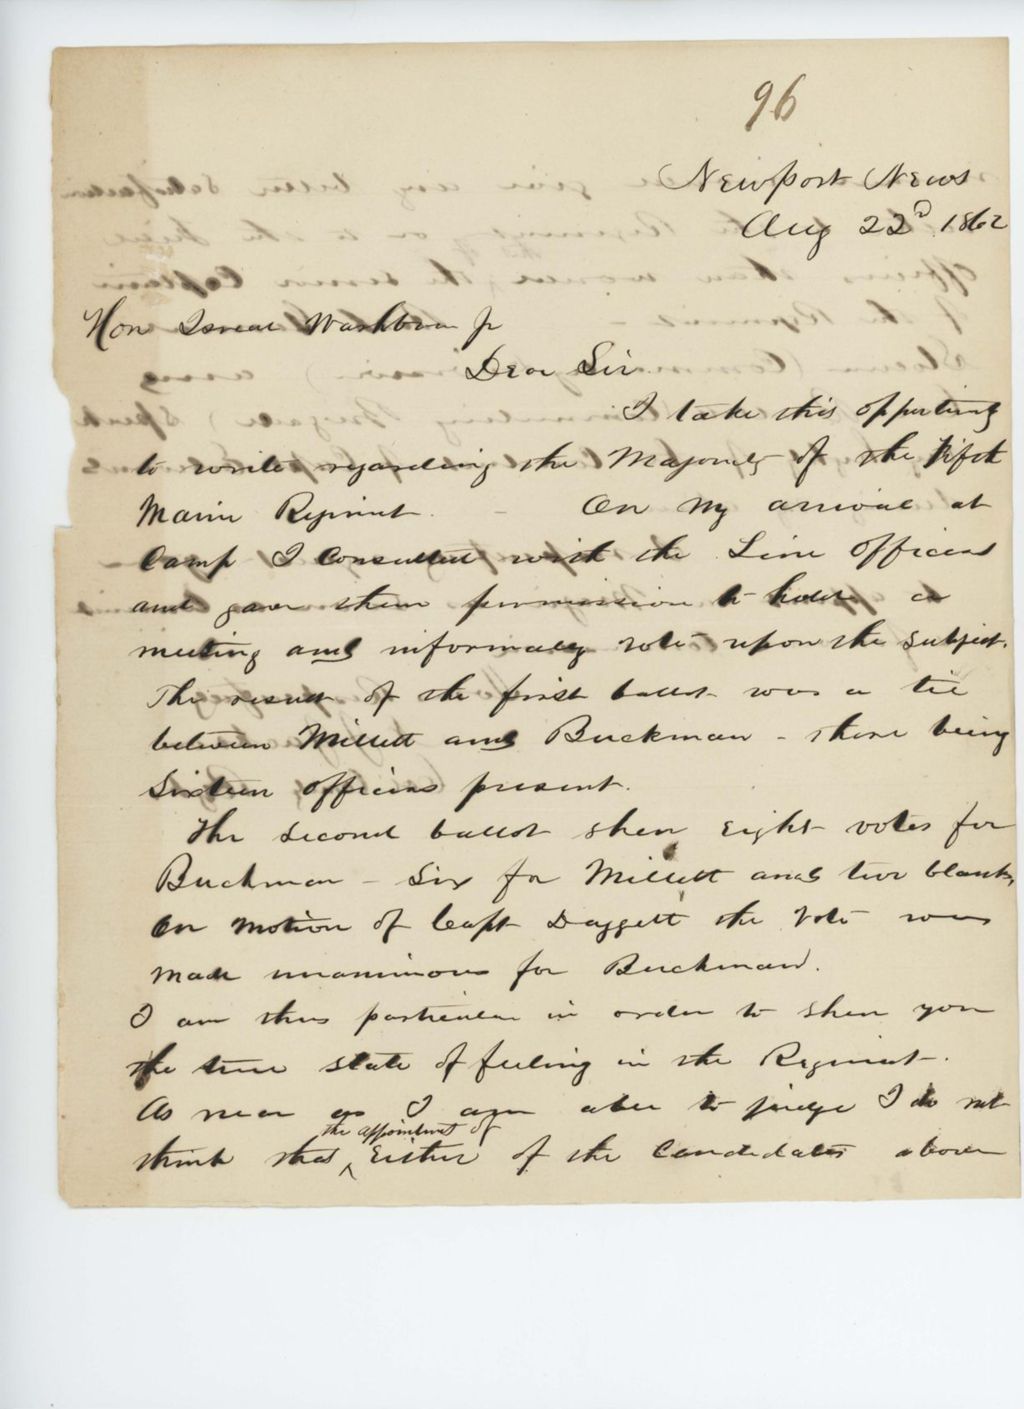 96
Newport News
Aug 22d 1862
Hon Isreal Washburn Jr
Dear Sir
I take this opportunity
to write regarding the Majority of the Fifth
Maine Regiment. - On my arrival at
Camp I Consulted with the Line Officers
and gave them permission to hold a
meeting and informally vote upon the subject.
The result of the first ballot was a tie
between Millett and Buckman - there being
Sixteen officers present.
The second ballot shew eight votes for
Buckman - Six for Millett and two blanks,
On motion of Capt Daggett the vote was
made unanimous for Buckman.
I am thus particular in order to shew you
the true state of feeling in the Regiment.
As near as I am able to judge I do not
the appointment of
think that ^ Either of the Candidates above